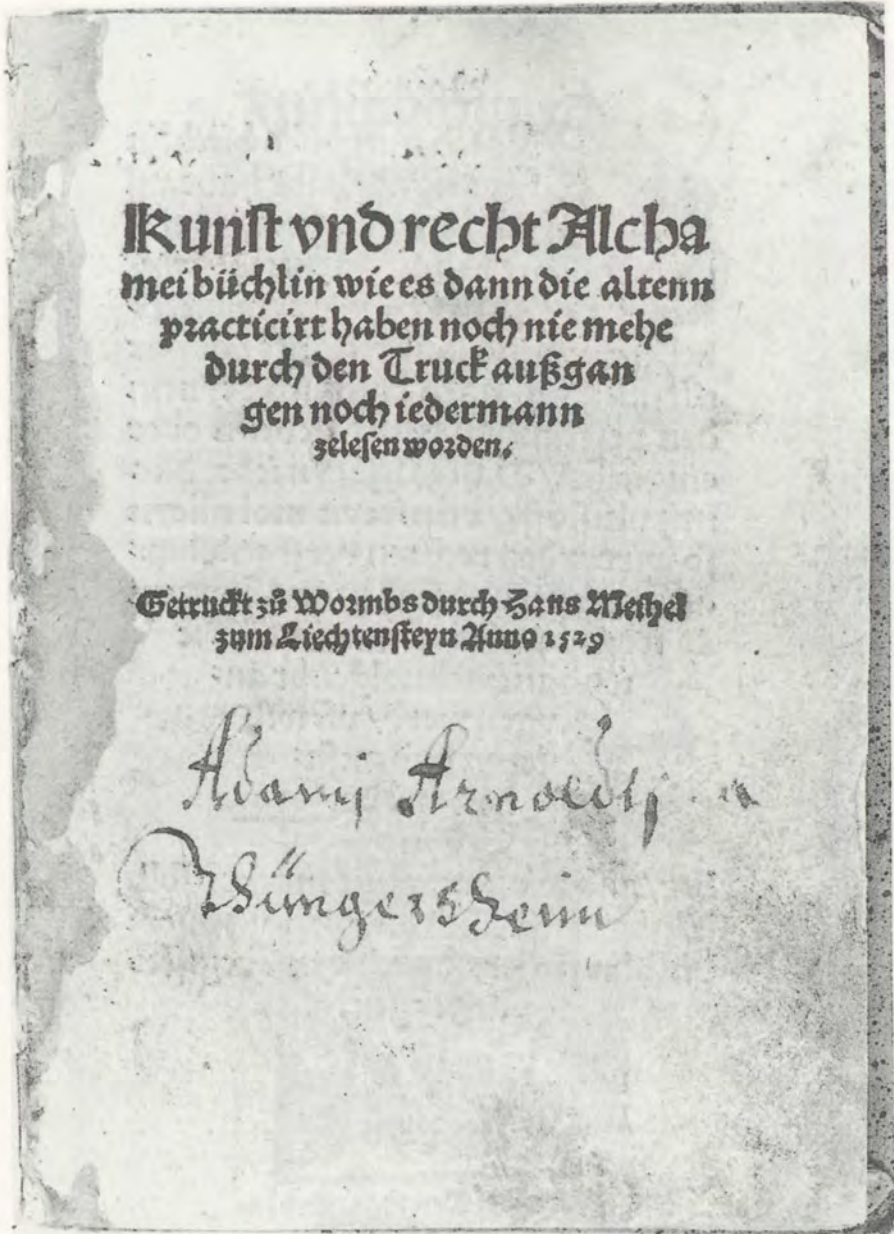 Kunst vnd recht Alcha
mei büchlin wie es dann die altenn
practicirt haben noch nie mehe
durch den Truck außgan
gen noch iedermann
zelesen worden.
Getruckt zů Wormbs durch Hans Meihel
zum Liechtensteyn Anno 1529
Adamj Arnoldj a
Thüngersheim